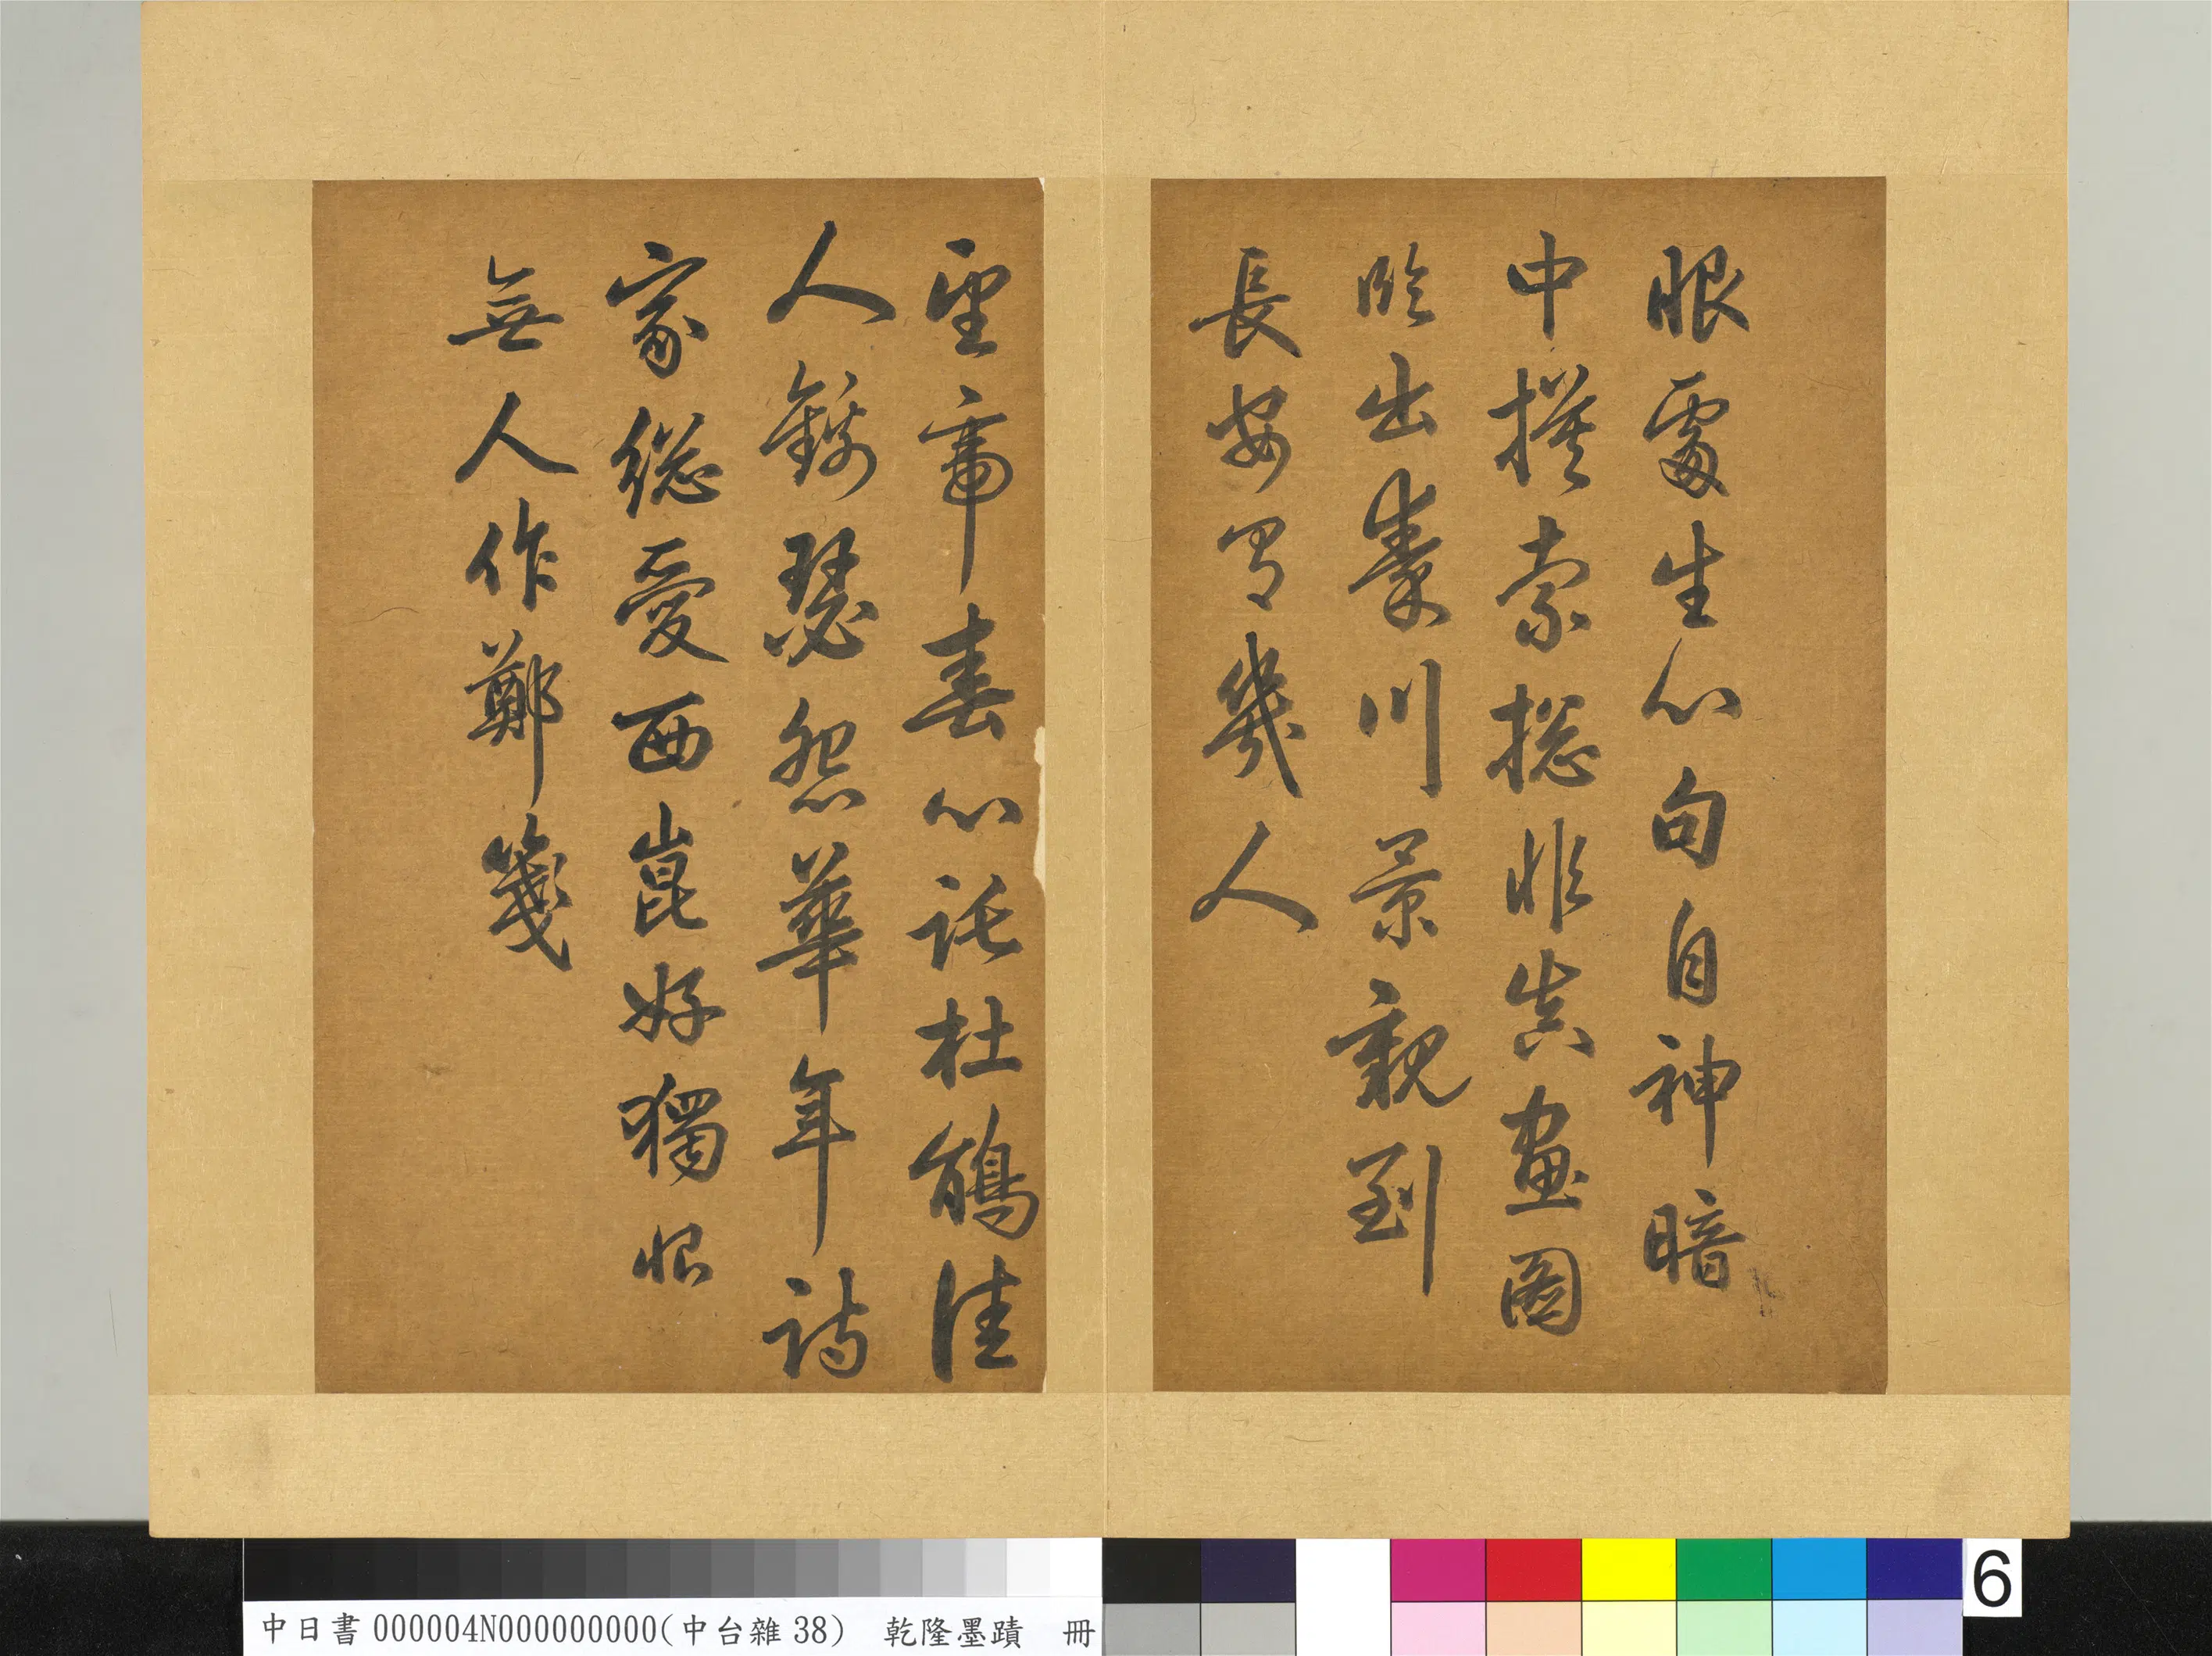 眼處生心句自神暗
中摸索摠非真畫圖
臨出秦川景親到
長安有幾人
望帝春心託杜鵑佳
人錦瑟怨華年詩
家總愛西崑好獨恨
無人作鄭箋
中日書000004N000000000(中台雜38) 乾隆墨蹟 冊
6